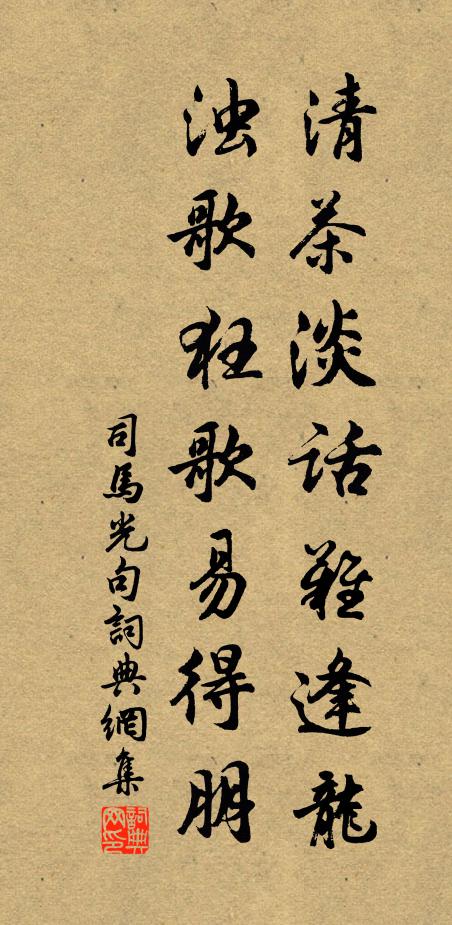 清茶淡話難逢龍
浊歌狂歌易得朋
司馬光句詞典網集
詞典网印